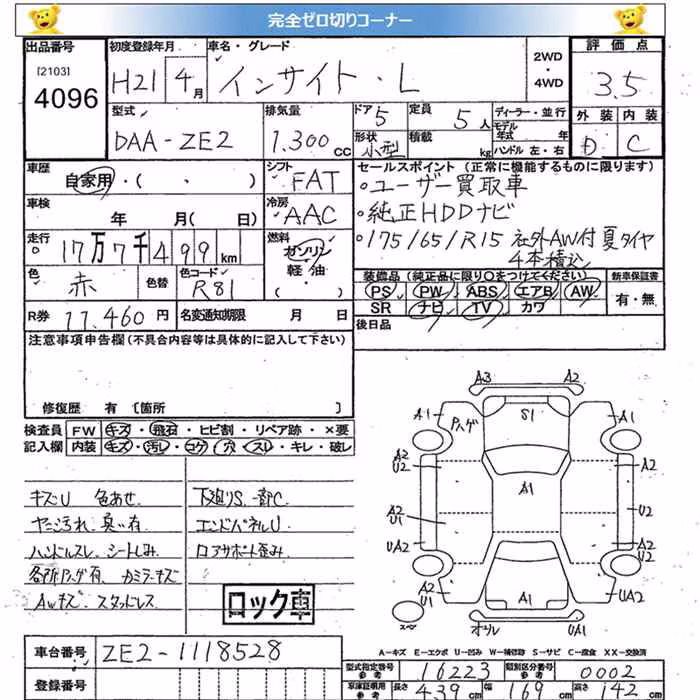 完全ゼロ切りコーナー
出品番号 初度登録年月 車名・グレード 評価点
[2103] 4096
H21 4月 インサイト・L 2WD・4WD 3.5
型式 排気量 ドア 定員 ディーラー・並行 外装 内装
DAA-ZE2 1.300cc 5 5人 モデル年式 年 D C
形状 小型 積載 kg ハンドル 左・右
車歴 シフト セールスポイント (正常に機能するものに限ります)
自家用・( 、 ) FAT ・ユーザー買取車
車検 冷房 ・純正HDDナビ
年 月( 日) AAC ・175/65/R15 社外AW付 夏タイヤ
4本積込
走行 17万7千499km 燃料 ガソリン・軽油・( )
色 赤 色替 色コード R81
装備品(純正品に限り○をつけてください) 新車保証書
PS PW ABS エアB AW 有・無
SR ナビ TV カワ
R券 11.460円 名変通知期限 月 日 後日品
注意事項申告欄(不具合内容等は具体的に記入して下さい)
修復歴 有 〔箇所 〕
検査員 FW キズ・飛石・ヒビ割・リペア跡・×要
記入欄 内装 キズ・汚レ・コゲ・穴・スレ・キレ・破レ
キズU 色あせ. 下廻りS.一部C
ヤニ汚れ、臭い有 エンドパネルU
ハンドルスレ シートしみ ロアサポート歪み
各所ハゲ有、カミラーキズ
AWキズ、スタッドレス
ロック車
A3 A2
A1 ハゲ S1 A1
A2 U2 A1 A2
A2 U1 U2
UA2 A2
A2 U1 A1 UA2
スペア オウル UA1
A-キズ E-エクボ U-凹み W-補修跡 S-サビ C-腐食 XX-交換済
車台番号 ZE2-1118528
登録番号
型式指定番号 参考 16223 類別区分番号 参考 0002
車庫証明用 参考 長さ 439cm 幅 169cm 高さ 142cm